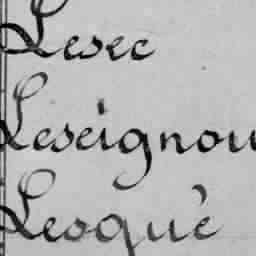 Lesec
Leseignou
Lesqué